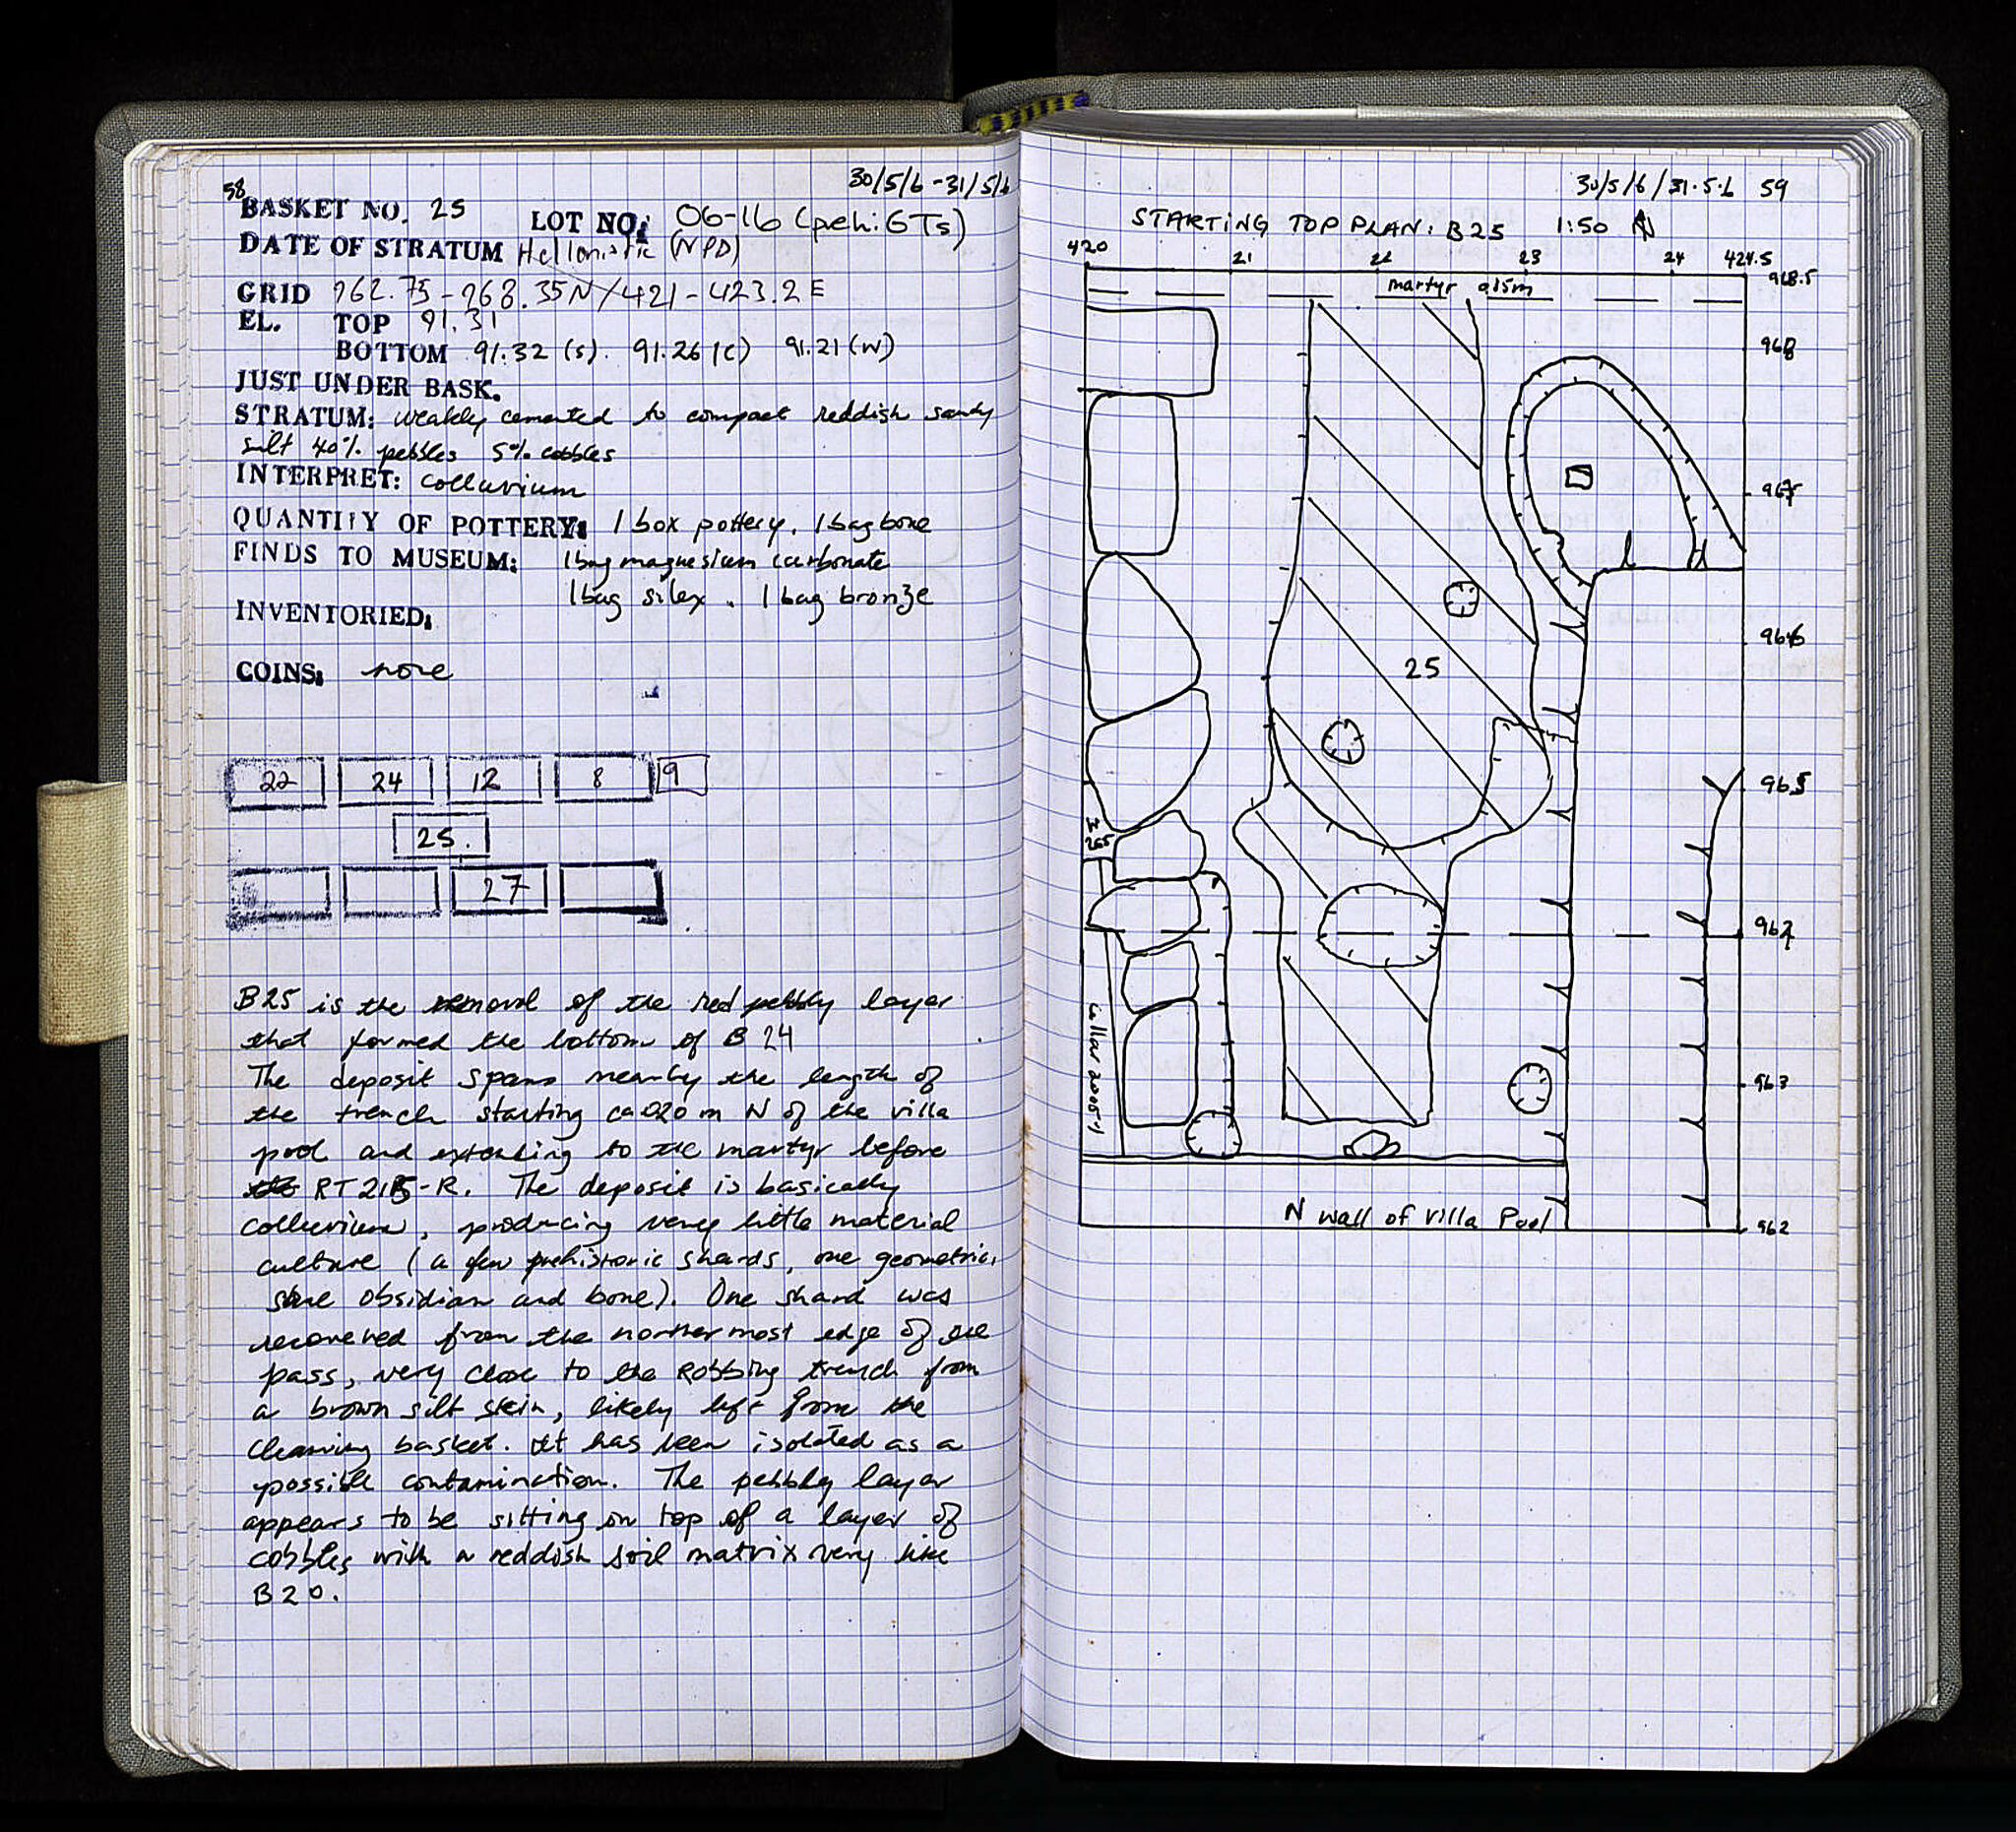 58
30/5/6 - 31/5/6
BASKET NO. 25 LOT NO: 06-16 (peh: GTs)
DATE OF STRATUM Hellenistic (NPD)
GRID 962.75 - 968.35N / 421 - 423.2 E
EL. TOP 91.31
BOTTOM 91.32 (s). 91.26 (c) 91.21 (W)
JUST UNDER BASK.
STRATUM: weakly cemented to compact reddish sandy
silt 40% pebbles 5% cobbles
INTERPRET: colluvium
QUANTITY OF POTTERY: 1 box pottery, 1 bag bone
FINDS TO MUSEUM: 1 bag magnesium carbonate
1 bag silex . 1 bag bronze
INVENTORIED:
COINS: none
22 24 12 8 9
25.
27
B25 is the removal of the red pebbly layer
that formed the bottom of B 24
The deposit spans nearly the length of
the trench starting ca 020 m N of the villa
pool and extending to the martyr before
RT 215-R. The deposit is basically
colluvium, producing very little material
culture (a few prehistoric shards, one geometric,
some obsidian and bone). One shard was
recovered from the northermost edge of the
pass, very close to the Robbing trench from
a brown silt skin, likely left from the
cleaning basket. It has been isolated as a
possible contamination. The pebbly layer
appears to be sitting on top of a layer of
cobbles with a reddish soil matrix very like
B20.
30/5/6 / 31.5.6 59
STARTING TOP PLAN: B25 1:50 N
420 21 22 23 24 424.5
968.5
martyr 0.15m
968
967
966
25
965
265
962
collar 2005-1
963
N wall of Villa Pool
962